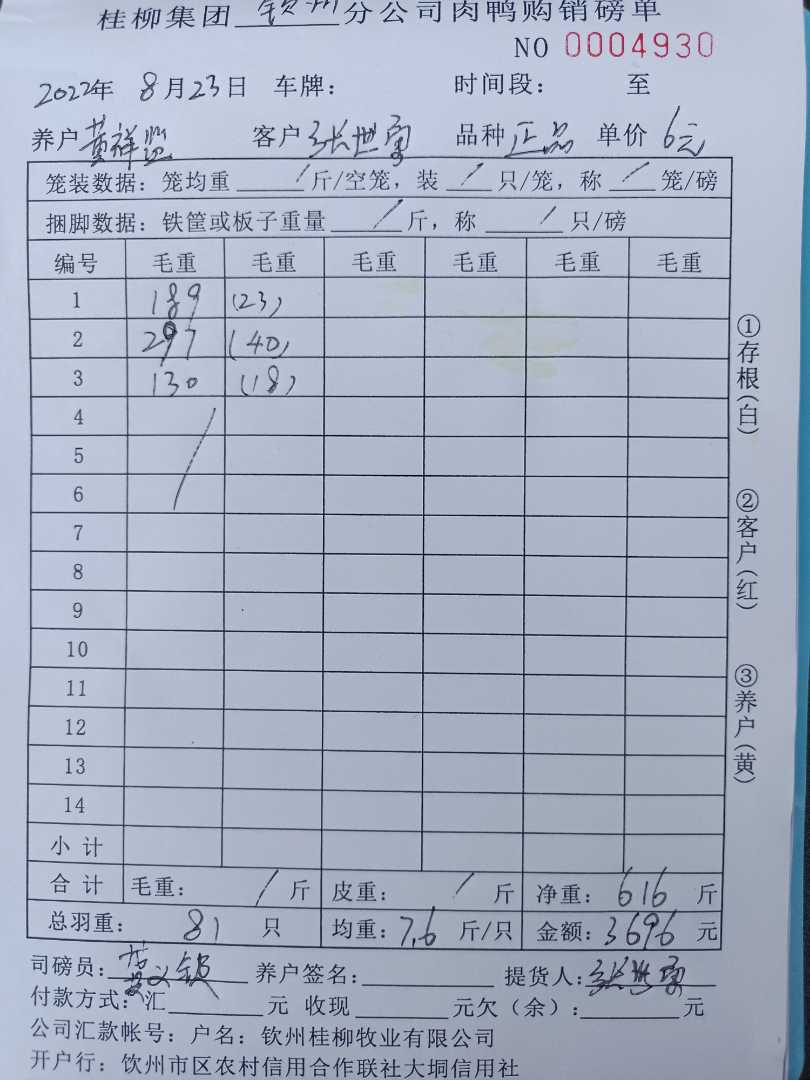 桂柳集团 钦州 分公司肉鸭购销磅单
NO 0004930
2022年 8月23日 车牌： 时间段： 至
养户 黄祥 客户 张世 品种 正品 单价 6元
笼装数据：笼均重 / 斤/空笼，装 / 只/笼，称 / 笼/磅
捆脚数据：铁筐或板子重量 / 斤，称 / 只/磅
编号 毛重 毛重 毛重 毛重 毛重 毛重
1 189 (23)
2 297 (40)
3 130 (18)
4 /
5
6
7
8
9
10
11
12
13
14
小 计
合 计 毛重： / 斤 皮重： / 斤 净重：616 斤
总羽重： 81 只 均重：7.6 斤/只 金额：3696 元
司磅员： 养户签名： 提货人：张世
付款方式：汇 元 收现 元欠（余）： 元
公司汇款帐号：户名：钦州桂柳牧业有限公司
开户行：饮州市区农村信用合作联社大垌信用社
①存根(白)
②客户(红)
③养户(黄)